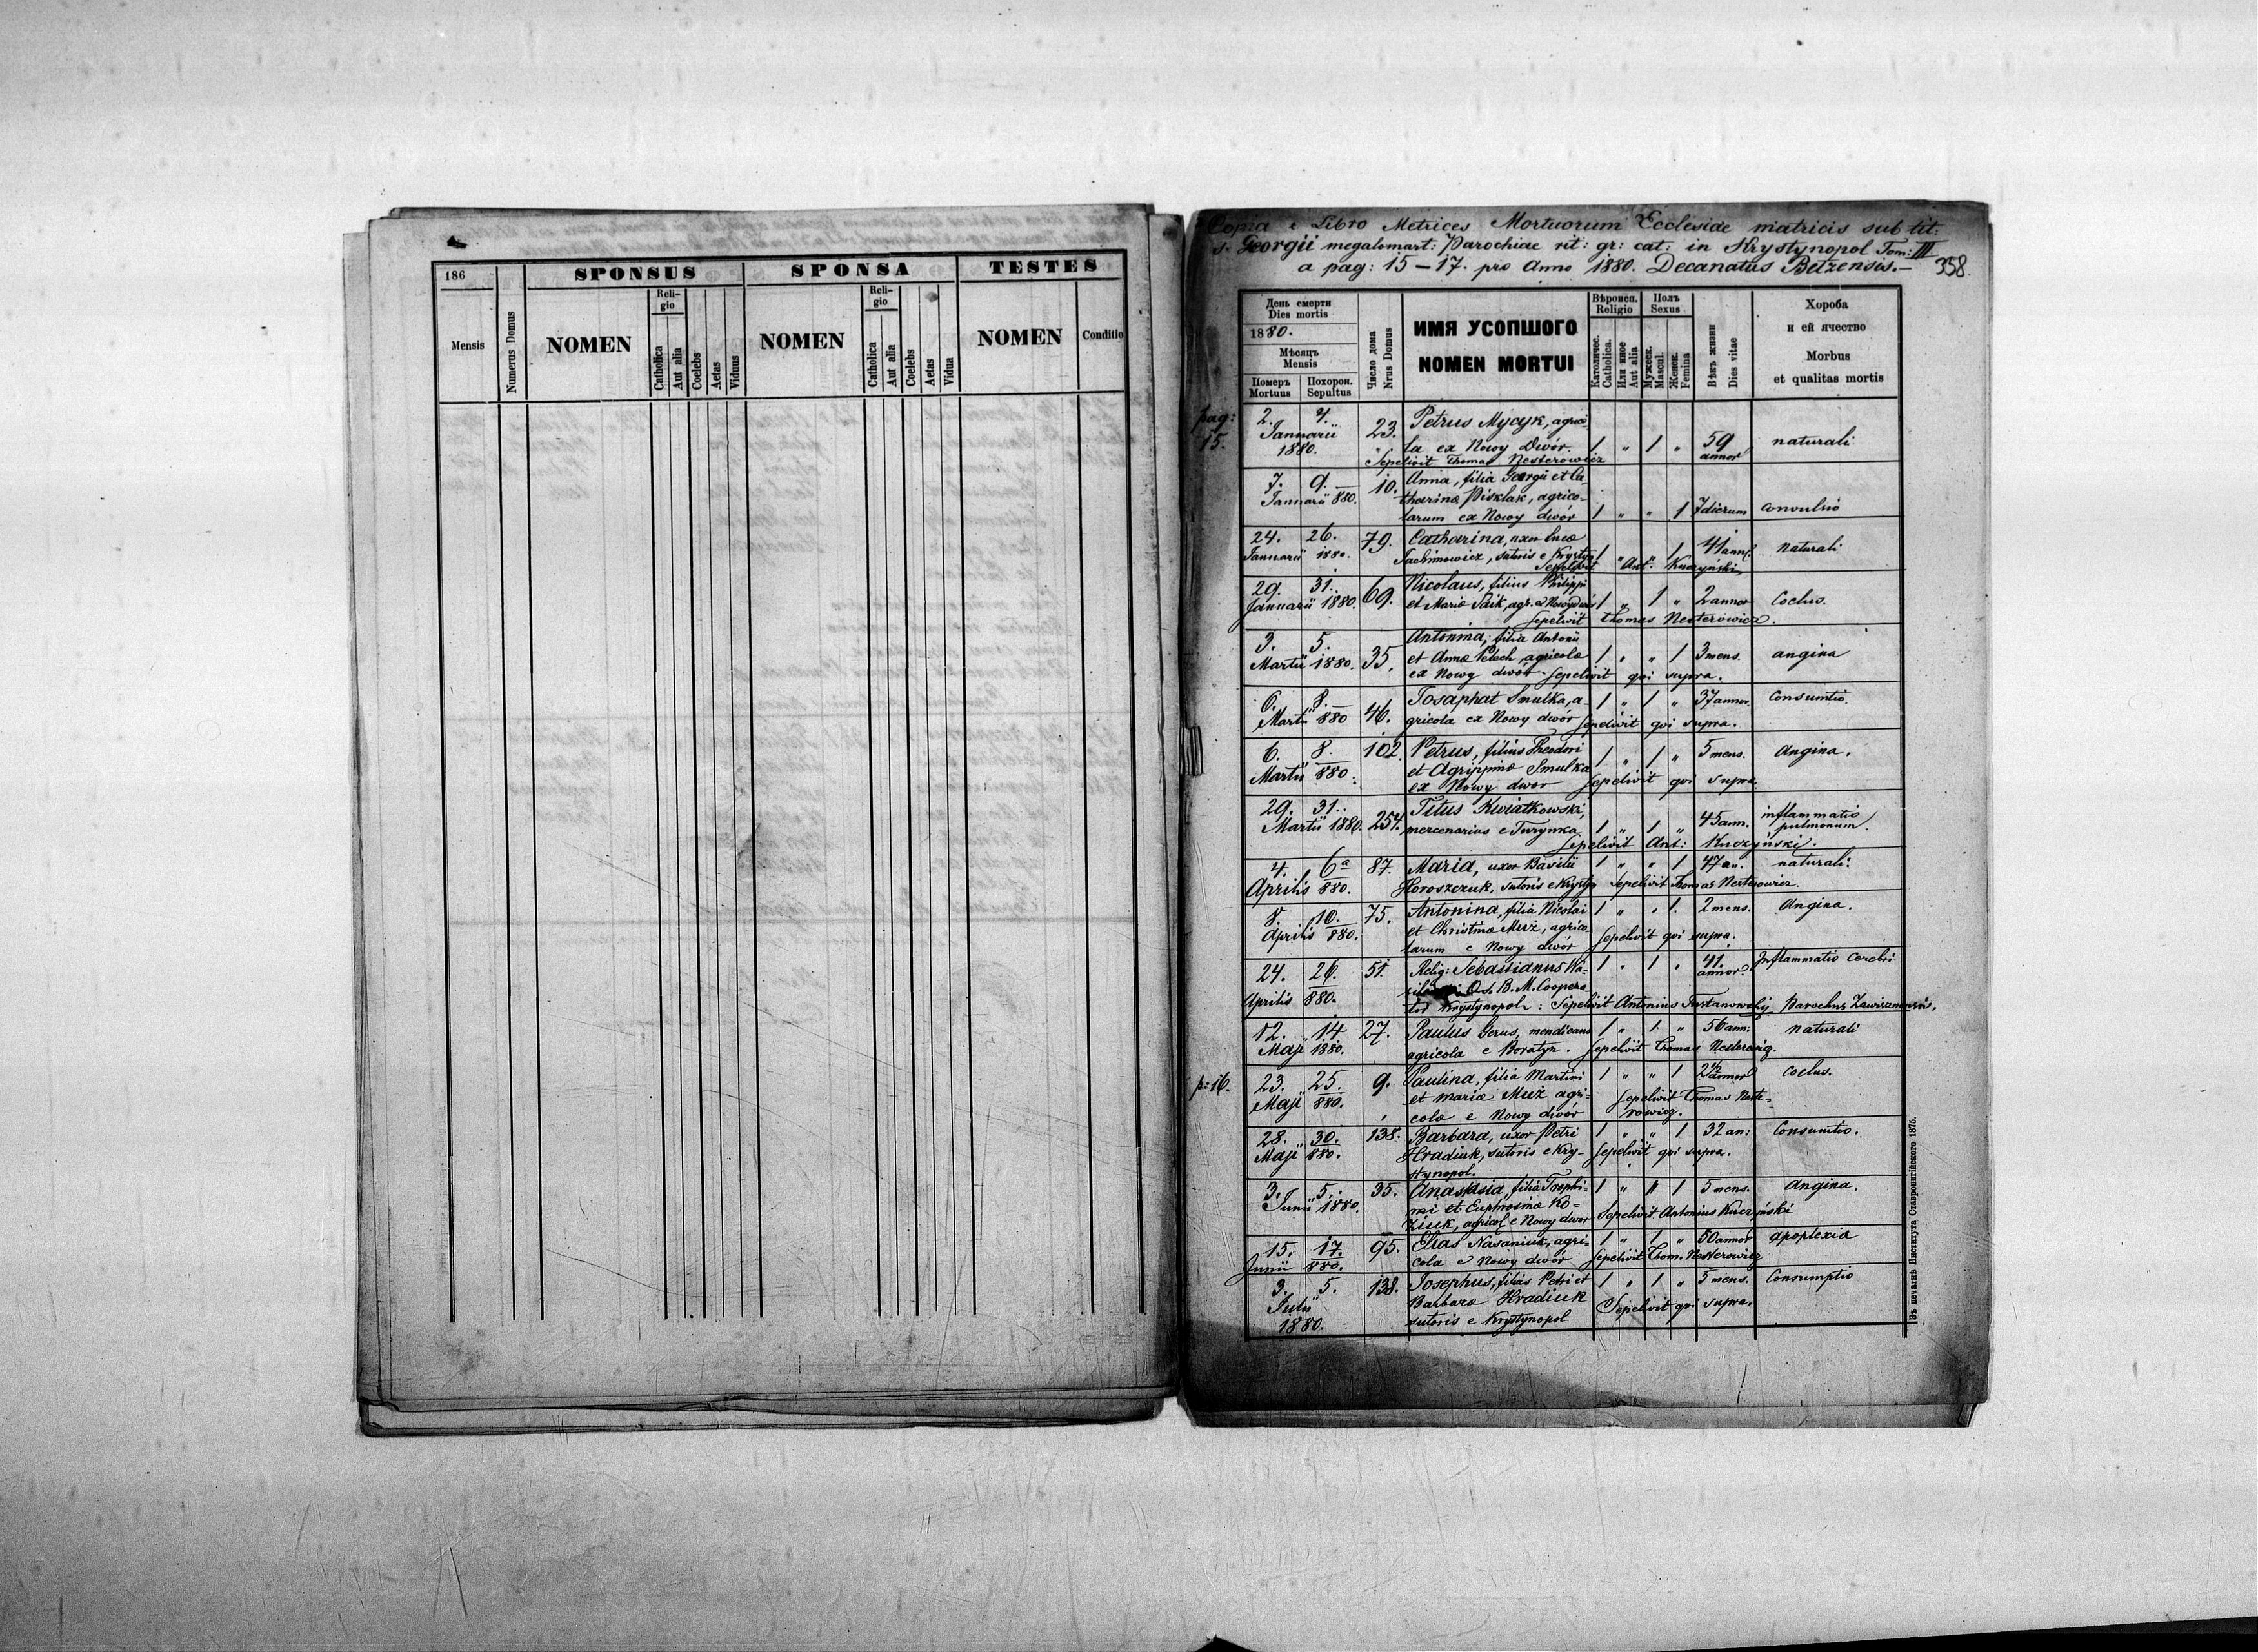 186
SPONSUS
SPONSA
TESTES
Mensis
Numerus Domus
NOMEN
Religio
Catholica
Aut alia
Coelebs
Aetas
Viduus
NOMEN
Religio
Catholica
Aut alia
Coelebs
Aetas
Vidua
NOMEN
Conditio
Copia e Libro Metrices Mortuorum Ecclesiae matricis sub tit:
s. Georgii megalomart: Parochiae rit: gr: cat: in Krystynopol Tom: III
a pag: 15 – 17. pro Anno 1880. Decanatus Belzensis.–
358.
День смерти
Dies mortis
1880.
Мѣсяцъ
Mensis
Померъ
Mortuus
Похорон.
Sepultus
Число дома
Nrus Domus
ИМЯ УСОПШОГО
NOMEN MORTUI
Вѣроисп.
Religio
Католичес.
Catholica.
Или иное
Aut alia
Полъ
Sexus
Мужеск.
Mascul.
Женск.
Femina
Вѣкъ жизни
Dies vitae
Хороба
и ей ячество
Morbus
et qualitas mortis
pag:
15.
2. 4. 23. Petrus Mycyk, agrico-
Januarii
1880. la ex Nowy Dwór 1 " 1 " 59 annor naturali
Sepelivit Thomas Nesterowicz
7. 9. 10. Anna, filia Georgii et Ca-
Januarii 880. tharinæ Pisklak, agrico-
larum ex Nowy dwór 1 " " 1 7 dierum convulsio
24. 26. 79. Catharina, uxor Lucæ
Januarii 1880. Jachimowicz, sutoris e Krystyn 1 " " 1 41 ann. naturali
Sepelivit Ant: Kuczyński
29. 31. 69. Nicolaus, filius Philippi
Januarii 1880. et Mariæ Saik, agr. ex Nowydwór 1 " 1 " 2 annor Coclus.
Sepelivit Thomas Nesterowicz.
3. 5. 35. Antonina, filia Antonii
Martii 1880. et Annæ Pelech, agricolæ 1 " " 1 3 mens. angina
ex Nowy dwór. Sepelivit qui supra.
6. 8. 46. Josaphat Smulka, a- 1 " 1 " 37 annor. Consumtio.
Martii 880 gricola ex Nowy dwór Sepelivit qui supra.
6. 8. 102. Petrus, filius Theodori 1 " 1 " 5 mens. Angina.
Martii 880. et Agrippinæ Smulka
ex Nowy dwor Sepelivit qui supra.
29. 31. 257. Titus Kwiatkowski,
Martii 1880. mercenarius e Turynka 1 " 1 " 45 ann. inflammatio pulmonum.
Sepelivit Ant: Kuczyński.
4. 6a 87. Maria, uxor Basilii 1 " " 1 47 an. naturali.
Aprilis 880. Horoszczuk, sutoris e Krystyn Sepelivit Thomas Nesterowicz.
8. 10. 75. Antonina, filia Nicolai 1 " " 1. 2 mens. Angina.
Aprilis 880. et Christinæ Muż, agrico
larum e Nowy dwór Sepelivit qui supra.
24. 26. 51. Relig: Sebastianus 1 " 1 " 41. annor. Inflammatio Cerebri
Aprilis 880. B. M. Coopera-
tor Krystynopol: Sepelivit Antonius Parochus
12. 14 27. Paulus Gerus, mendicans 1 " 1 " 56 ann: naturali
Maji 1880. agricola e Boratyn. Sepelivit Thomas Nesterowicz.
p: 16. 23. 25. 9. Paulina, filia Martini 1 " " 1 2½ annor Coclus.
Maji 880. et mariæ Muż agri- Sepelivit Thomas Neste-
colæ e Nowy dwór rowicz.
28. 30. 138. Barbara, uxor Petri 1 " " 1 32 an: Consumtio.
Maji 880. Hradiuk, sutoris e Kry- Sepelivit qui supra.
stynopol.
3. 5. 35. Anastasia, filia Trophi- 1 " " 1 5 mens. Angina.
Junii 1880. mi et Euphrosinæ Ko- Sepelivit Antonius Kuczyński
ziuk, agricol. e Nowy dwor
15. 17. 95. Elias Nasaniuk, agri- 1 " 1 " 50 annor apoplexia
Junii 880. cola e Nowy dwór Sepelivit Thom. Nesterowicz
3. 5. 138. Josephus, filius Petri et 1 " 1 " 5 mens. Consumptio
Julii Barbaræ Hradiuk Sepelivit qui supra.
1880. sutoris e Krystynopol
Изъ печатнѣ Института Ставропигійского 1875.